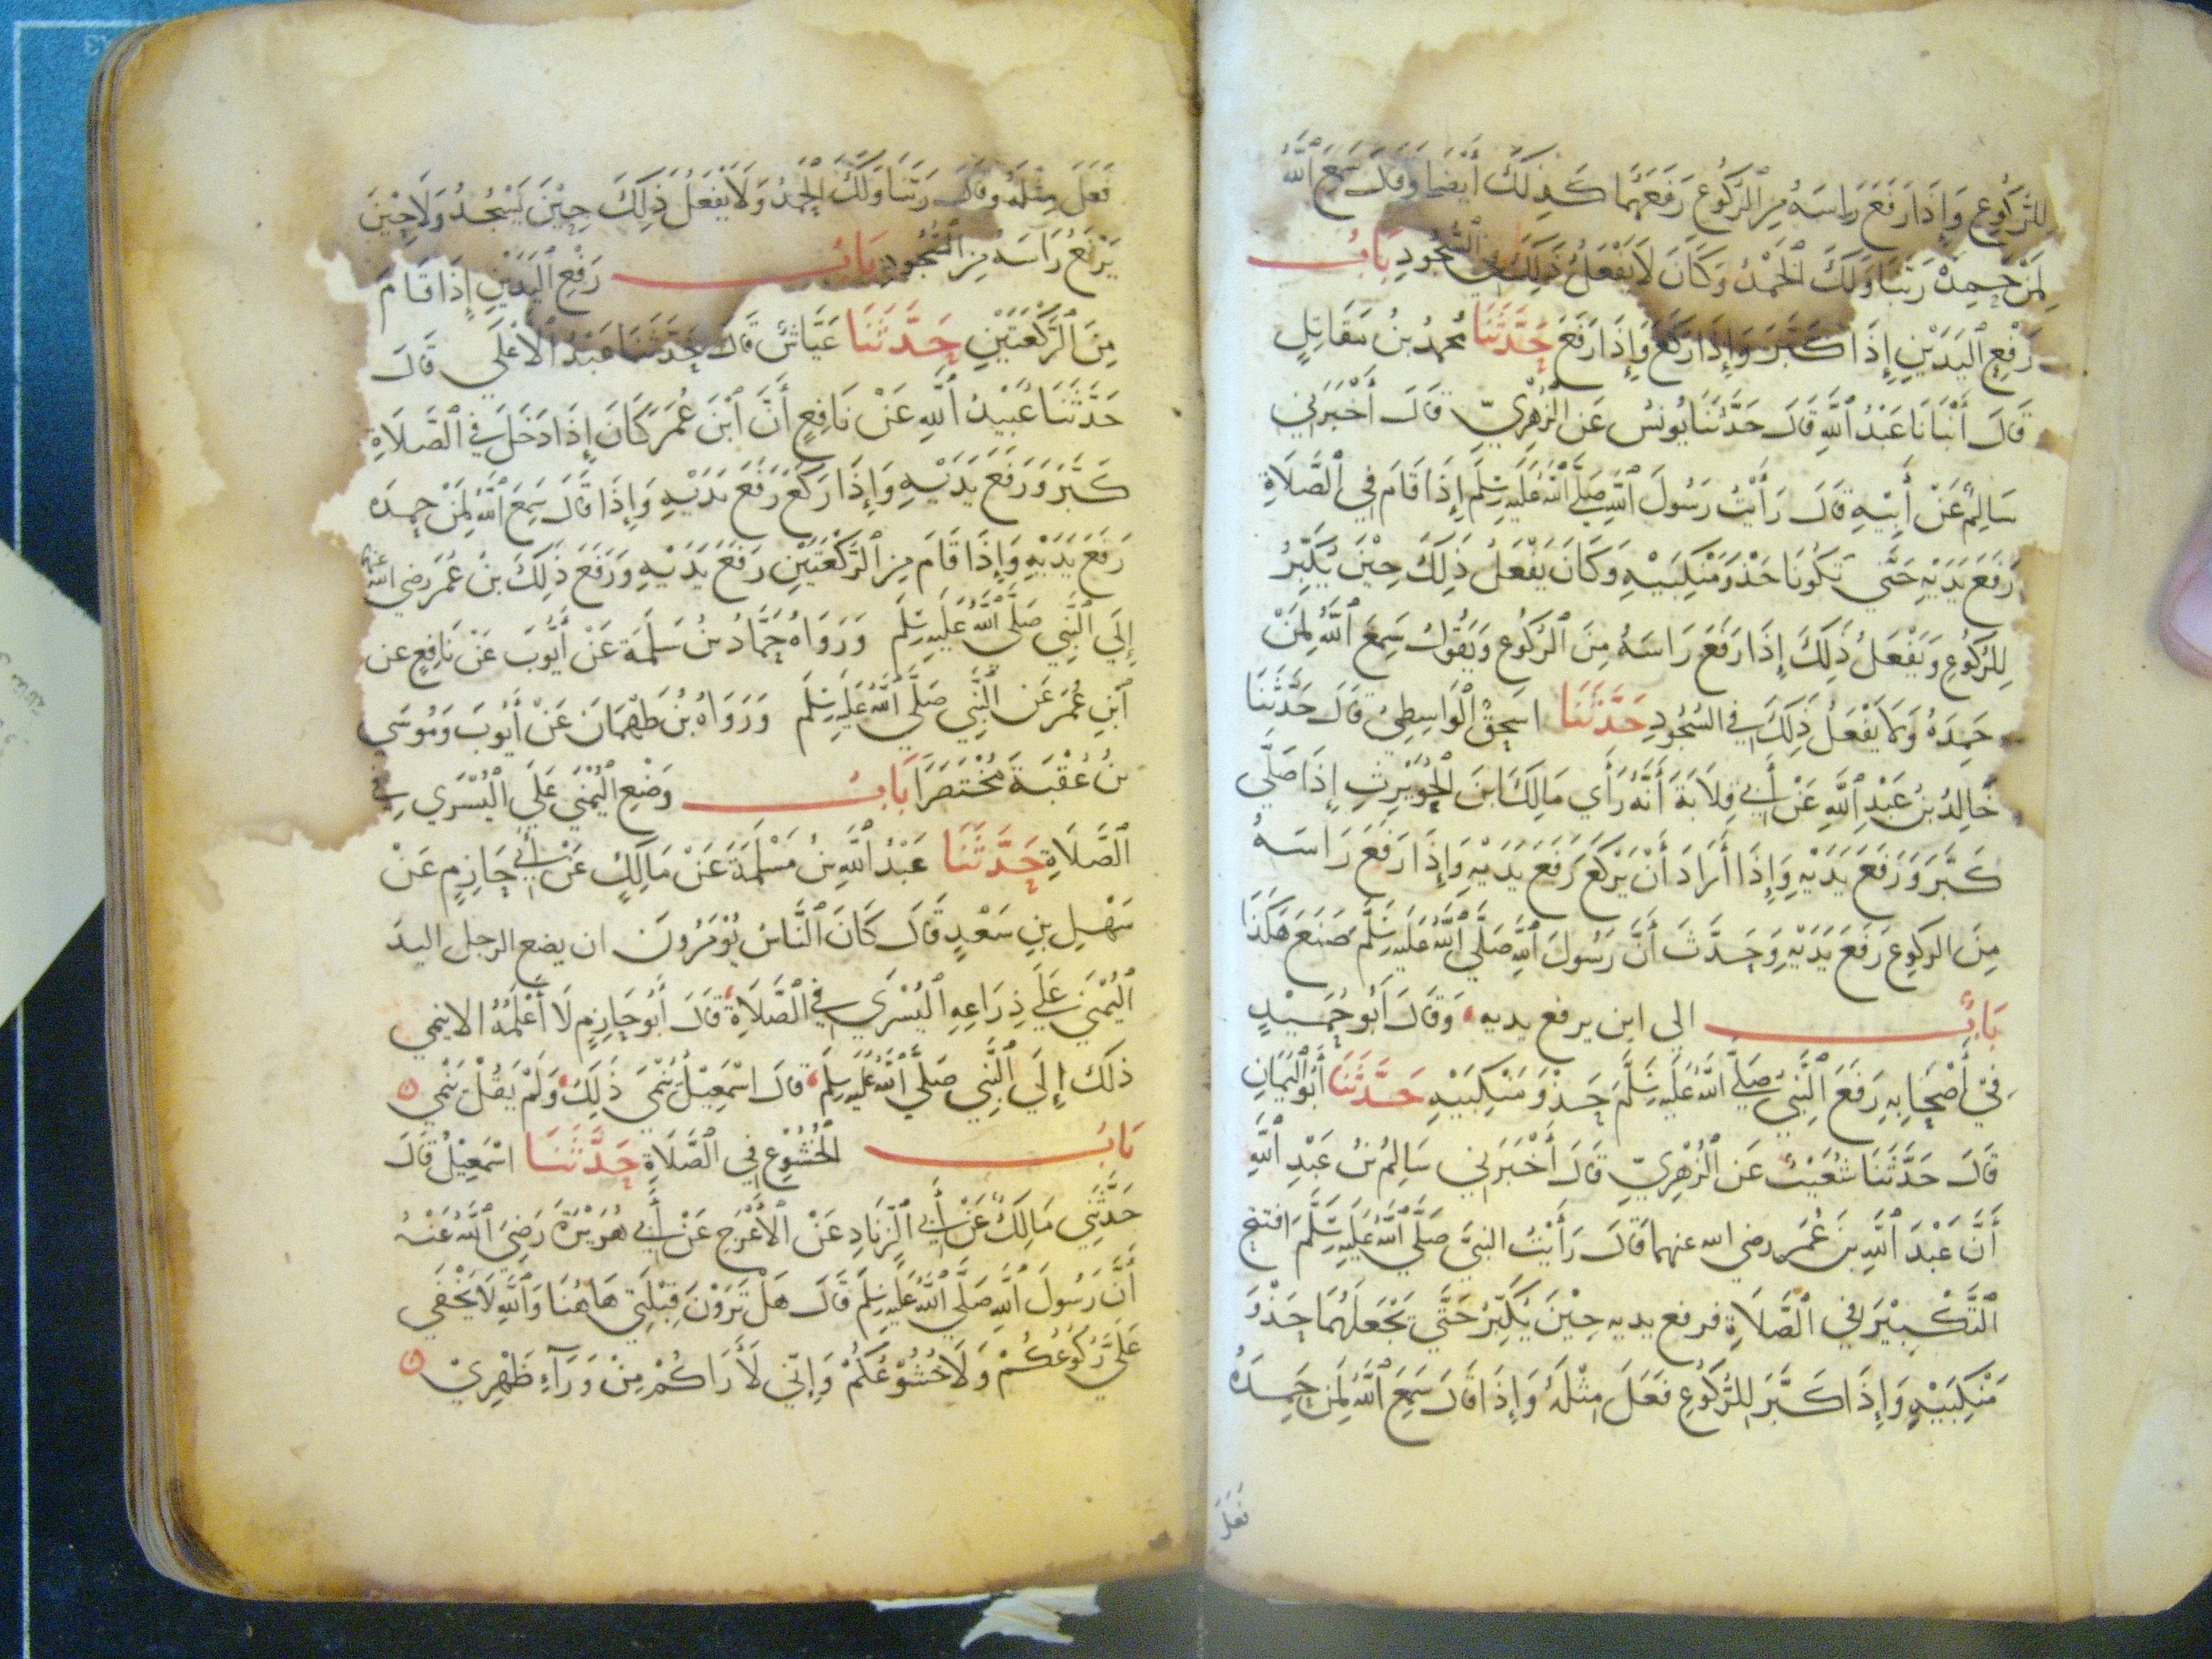 لِلرُّكُوعِ وَإِذَا رَفَعَ رَاسَهُ مِنَ ٱلرُّكُوعِ رَفَعَهُمَا كَذَلِكَ أَيْضًا وَقَالَ سَمِعَ ٱللَّهُ
لِمَنْ حَمِدَهُ رَبَّنَا وَلَكَ الْحَمْدُ وَكَانَ لَا يَفْعَلُ ذَلِكَ فِي السُّجُودِ بَابُ
رَفْعِ ٱلْيَدَيْنِ إِذَا كَبَّرَ وَإِذَا رَكَعَ وَإِذَا رَفَعَ حَدَّثَنَا محمدُ بنُ مُقَاتِلٍ
قَالَ أَنْبَانَا عَبْدُ ٱللَّهِ قَالَ حَدَّثَنَا يُونُسُ عَنِ الزُّهْرِيِّ قَالَ أَخْبَرَنِي
سَالِمٌ عَنْ أَبِيْهِ قَالَ رَأَيْتُ رَسُولَ ٱللَّهِ صَلَّى ٱللَّهُ عَلَيْهِ وَسَلَّمَ إِذَا قَامَ فِي ٱلصَّلَاةِ
رَفَعَ يَدَيْهِ حَتَّى تَكُونَا حَذْوَ مَنْكِبَيْهِ وَكَانَ يَفْعَلُ ذَلِكَ حِيْنَ يُكَبِّرُ
لِلرُّكُوعِ وَيَفْعَلُ ذَلِكَ إِذَا رَفَعَ رَاسَهُ مِنَ ٱلرُّكُوعِ وَيَقُولُ سَمِعَ ٱللَّهُ لِمَنْ
حَمِدَهُ وَلَا يَفْعَلُ ذَلِكَ فِي السُّجُودِ حَدَّثَنَا اسحقُ الْوَاسِطِيُّ قَالَ حَدَّثَنَا
خَالِدُ بنُ عَبْدِ ٱللَّهِ عَنْ أَبِي قِلَابَةَ أَنَّهُ رَأَى مَالِكَ ابنَ الْحُوَيْرِثِ إِذَا صَلَّى
كَبَّرَ وَرَفَعَ يَدَيْهِ وَإِذَا أَرَادَ أَنْ يَرْكَعَ رَفَعَ يَدَيْهِ وَإِذَا رَفَعَ رَاسَهُ
مِنَ الركوعِ رَفَعَ يَدَيْهِ وَحَدَّثَ أَنَّ رَسُولَ ٱللَّهِ صَلَّى ٱللَّهُ عَلَيْهِ وَسَلَّمَ صَنَعَ هَكَذَا
بَابُ الي اين يرفع يديه وَقَالَ أَبُو حُمَيْدٍ
فِيْ أَصْحَابِهِ رَفَعَ النَّبِيُّ صَلَّى ٱللَّهُ عَلَيْهِ وَسَلَّمَ حَذْوَ مَنْكِبَيْهِ حَدَّثَنَا أَبُو الْيَمَانِ
قَالَ حَدَّثَنَا شُعَيْبٌ عَنِ الزُّهْرِيِّ قَالَ أَخْبَرَنِي سَالِمُ بنُ عَبْدِ ٱللَّهِ
أَنَّ عَبْدَ ٱللَّهِ بنَ عُمَرَ رضي الله عنهما قَالَ رَأَيْتُ النبيَّ صَلَّى ٱللَّهُ عَلَيْهِ وَسَلَّمَ افتتح
ٱلتَّكْبِيْرَ فِي ٱلصَّلَاةِ فرفع يديه حِيْنَ يُكَبِّرُ حَتَّى يَجْعَلَهُمَا حَذْوَ
مَنْكِبَيْهِ وَإِذَا كَبَّرَ لِلرُّكُوعِ فَعَلَ مِثْلَهُ وَإِذَا قَالَ سَمِعَ ٱللَّهُ لِمَنْ حَمِدَهُ
فَعَلَ
فَعَلَ مِثْلَهُ وَقَالَ رَبَّنَا وَلَكَ الْحَمْدُ وَلَا يَفْعَلُ ذَلِكَ حِيْنَ يَسْجُدُ وَلَا حِيْنَ
يَرْفَعُ رَاسَهُ مِنَ السُّجُودِ بَابُ رَفْعِ الْيَدَيْنِ إِذَا قَامَ
مِنَ ٱلرَّكْعَتَيْنِ حَدَّثَنَا عَيَّاشٌ قَالَ حَدَّثَنَا عَبْدُ الْأَعْلَى قَالَ
حَدَّثَنَا عُبَيْدُ ٱللَّهِ عَنْ نَافِعٍ أَنَّ ٱبْنَ عُمَرَ كَانَ إِذَا دَخَلَ فِي ٱلصَّلَاةِ
كَبَّرَ وَرَفَعَ يَدَيْهِ وَإِذَا رَكَعَ رَفَعَ يَدَيْهِ وَإِذَا قَالَ سَمِعَ ٱللَّهُ لِمَنْ حمده
رَفَعَ يَدَيْهِ وَإِذَا قَامَ مِنَ ٱلرَّكْعَتَيْنِ رَفَعَ يَدَيْهِ وَرَفَعَ ذَلِكَ بنُ عُمَرَ رضي الله عنهما
إِلَى النَّبِيِّ صَلَّى ٱللَّهُ عَلَيْهِ وَسَلَّمَ وَرَوَاهُ حَمَّادُ بنُ سَلَمَةَ عَنْ أَيُّوبَ عَنْ نَافِعٍ عن
ٱبْنِ عُمَرَ عَنِ النَّبِيِّ صَلَّى ٱللَّهُ عَلَيْهِ وَسَلَّمَ وَرَوَاهُ بنُ طَهْمَانَ عَنْ أَيُّوبَ وَمُوسَى
بنُ عُقْبَةَ مُخْتَصَرًا بَابُ وَضْعِ الْيُمْنَى عَلَى الْيُسْرَى فِي
ٱلصَّلَاةِ حَدَّثَنَا عَبْدُ ٱللَّهِ بنُ مَسْلَمَةَ عَنْ مَالِكٍ عَنْ أَبِي حَازِمٍ عَنْ
سَهْلِ بنِ سَعْدٍ قَالَ كَانَ ٱلنَّاسُ يُؤْمَرُونَ ان يضع الرجل اليدَ
الْيُمْنَى عَلَى ذِرَاعِهِ الْيُسْرَى فِي ٱلصَّلَاةِ قَالَ أَبُو حَازِمٍ لَا أَعْلَمُهُ الا ينمي
ذَلَكَ إِلَى النَّبِيِّ صَلَّى ٱللَّهُ عَلَيْهِ وَسَلَّمَ قَالَ اسْمَعِيْلُ يُنْمَى ذَلِكَ وَلَمْ يَقُلْ يَنْمِي
بَابُ الْخُشُوْعِ فِي ٱلصَّلَاةِ حَدَّثَنَا اسْمَعِيْلُ قَالَ
حَدَّثَنِي مَالِكٌ عَنْ أَبِي ٱلزِّنَادِ عَنْ الْأَعْرَجِ عَنْ أَبِي هُرَيْرَةَ رَضِيَ ٱللَّهُ عَنْهُ
أَنَّ رَسُولَ ٱللَّهِ صَلَّى ٱللَّهُ عَلَيْهِ وَسَلَّمَ قَالَ هَلْ تَرَوْنَ قِبْلَتِي هَاهُنَا وَٱللَّهِ لَا يَخْفَى
عَلَيَّ رُكُوعُكُمْ وَلَا خُشُوْعُكُمْ وَإِنِّي لَأَرَاكُمْ مِنْ وَرَآءِ ظَهْرِيْ